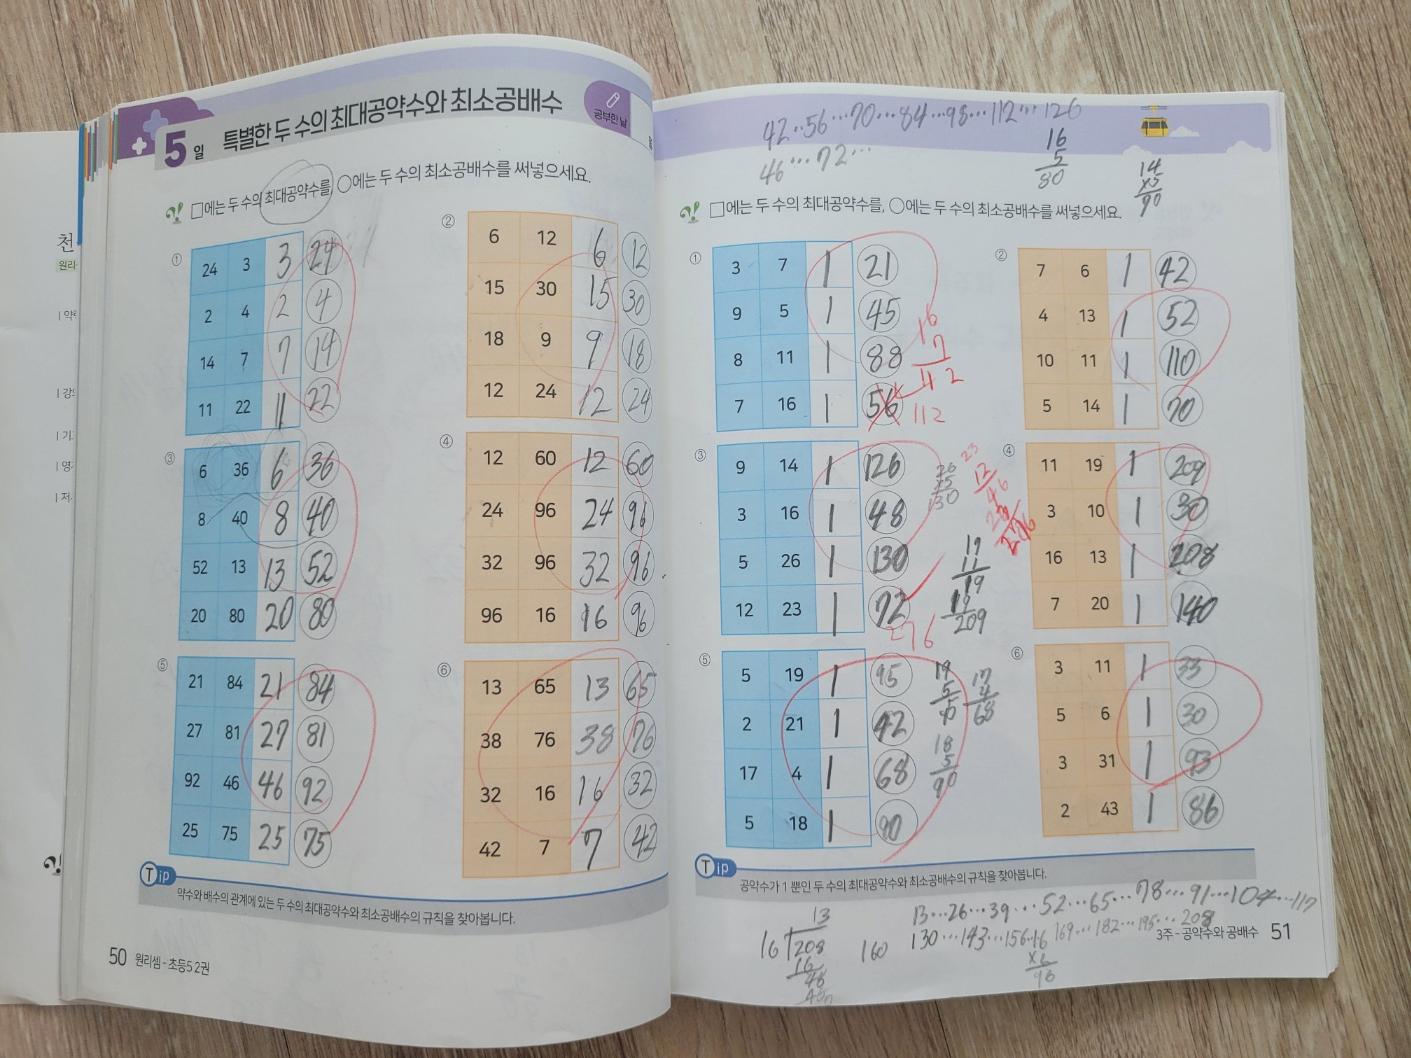 5일 특별한 두 수의 최대공약수와 최소공배수
공부한 날
□에는 두 수의 최대공약수를, ○에는 두 수의 최소공배수를 써넣으세요.
①
24 3 3 24
2 4 2 4
14 7 7 14
11 22 11 22
②
6 12 6 12
15 30 15 30
18 9 9 18
12 24 12 24
③
6 36 6 36
8 40 8 40
52 13 13 52
20 80 20 80
④
12 60 12 60
24 96 24 96
32 96 32 96
96 16 16 96
⑤
21 84 21 84
27 81 27 81
92 46 46 92
25 75 25 75
⑥
13 65 13 65
38 76 38 76
32 16 16 32
42 7 7 42
Tip
약수와 배수의 관계에 있는 두 수의 최대공약수와 최소공배수의 규칙을 찾아봅니다.
50 원리셈 - 초등5 2권
42··56···70···84···98···112···126
46···72···
16
5
80
14
x5
90
□에는 두 수의 최대공약수를, ○에는 두 수의 최소공배수를 써넣으세요.
①
3 7 1 21
9 5 1 45
8 11 1 88
7 16 1 56 112
16
7
42
②
7 6 1 42
4 13 1 52
10 11 1 110
5 14 1 70
③
9 14 1 126
3 16 1 48
5 26 1 130
12 23 1 72 276
26
x5
130
19
11
19
19
209
④
11 19 1 209
3 10 1 30
16 13 1 208
7 20 1 140
⑤
5 19 1 95
2 21 1 42
17 4 1 68
5 18 1 90
17
4
68
18
5
90
⑥
3 11 1 33
5 6 1 30
3 31 1 93
2 43 1 86
Tip
공약수가 1 뿐인 두 수의 최대공약수와 최소공배수의 규칙을 찾아봅니다.
13···26···39···52···65···78···91···104···117
130···143···156·169···182···195···208
13
16 208
16
48
160
16
x6
96
3주 - 공약수와 공배수 51